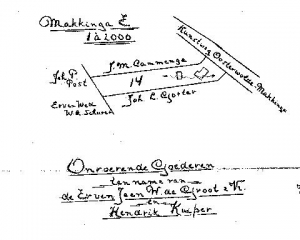 Makkinga E
1 à 2000
Kunstweg Oosterwolde-Makkinga
J. M. Cammenga
Joh. P.
Post
14
Erven Wed.
Joh. L. Gorter
Onroerende Goederen
ten name van
de Erven Jaan W. de Groot z. K.
en
Hendrik Kuiper